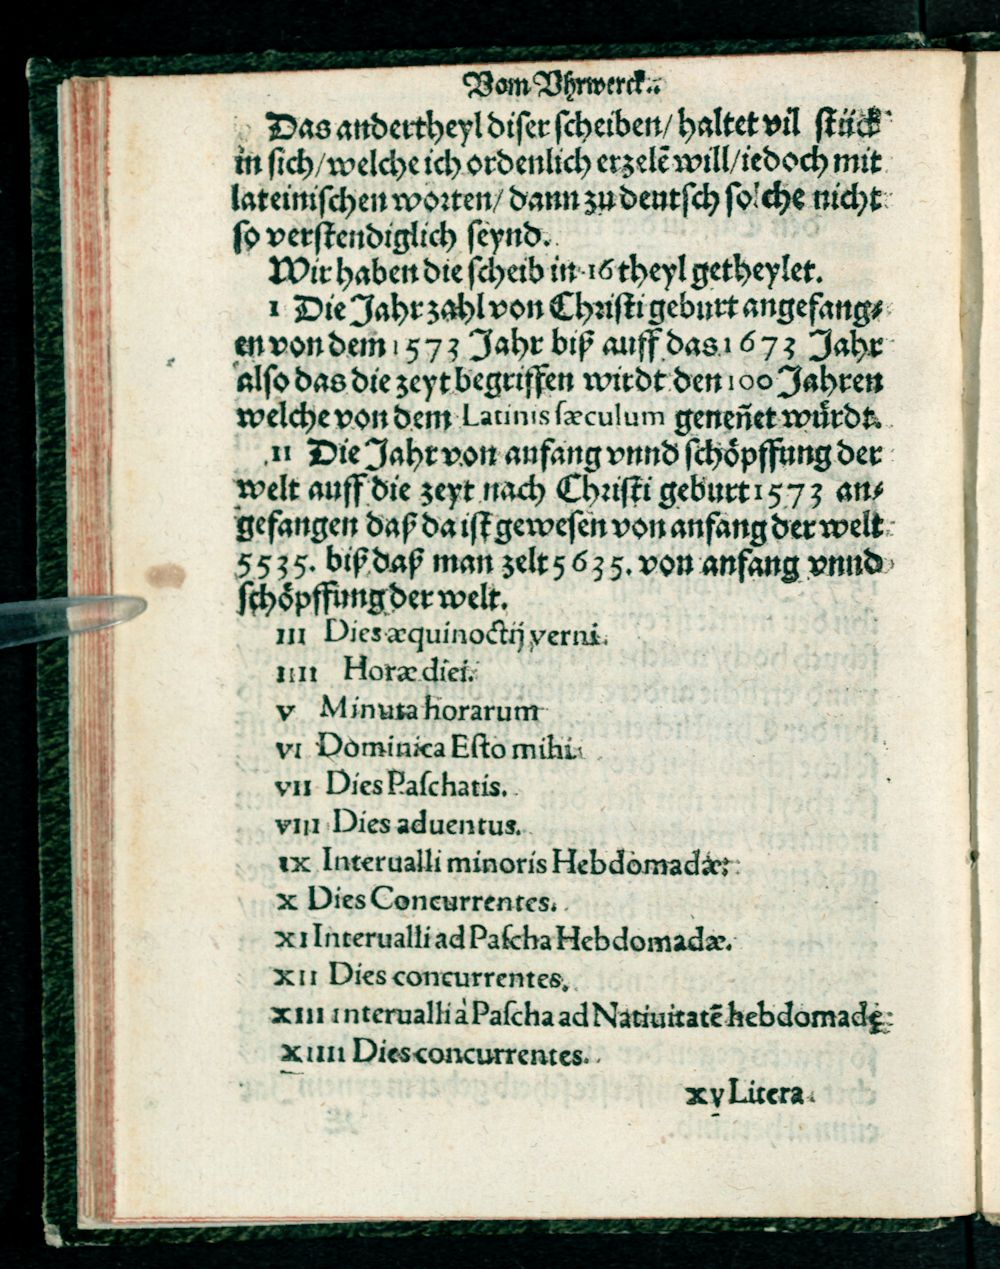 Vom Vhrwerck.
Das andertheyl diser scheiben/ haltet vil stück
in sich/ welche ich ordenlich erzelē will/ iedoch mit
lateinischen worten/ dann zu deutsch solche nicht
so verstendiglich seynd.
Wir haben die scheib in 16 theyl getheylet.
I Die Jahrzahl von Christi geburt angefang⸗
en von dem 1573 Jahr biß auff das 1673 Jahr
also das die zeyt begriffen wirdt den 100 Jahren
welche von dem Latinis sæculum geneñet würdt.
II Die Jahr von anfang vnnd schöpffung der
welt auff die zeyt nach Christi geburt 1573 an⸗
gefangen daß da ist gewesen von anfang der welt
5535. biß daß man zelt 5635. von anfang vnnd
schöpffung der welt.
III Dies æquinoctij verni.
IIII Horæ diei.
V Minuta horarum
VI Dominica Esto mihi.
VII Dies Paschatis.
VIII Dies aduentus.
IX Interualli minoris Hebdomadæ.
X Dies Concurrentes.
XI Interualli ad Pascha Hebdomadæ.
XII Dies concurrentes.
XIII interualli à Pascha ad Natiuitatē hebdomadę
XIIII Dies concurrentes.
XV Litera